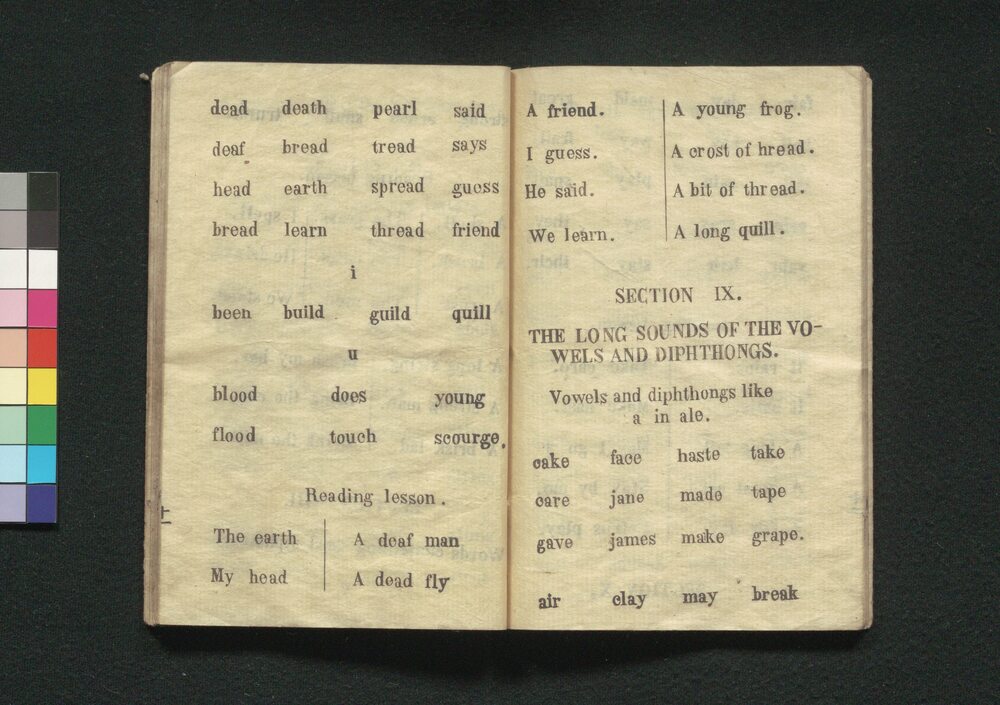 dead death pearl said
deaf bread tread says
head earth spread guess
bread learn thread friend
i
been build guild quill
u
blood does young
flood touch scourge.
Reading lesson.
The earth A deaf man
My head A dead fly
A friend. A young frog.
I guess. A crost of hread.
He said. A bit of thread.
We learn. A long quill.
SECTION IX.
THE LONG SOUNDS OF THE VO-
WELS AND DIPHTHONGS.
Vowels and diphthongs like
a in ale.
cake face haste take
care jane made tape
gave james make grape.
air clay may break